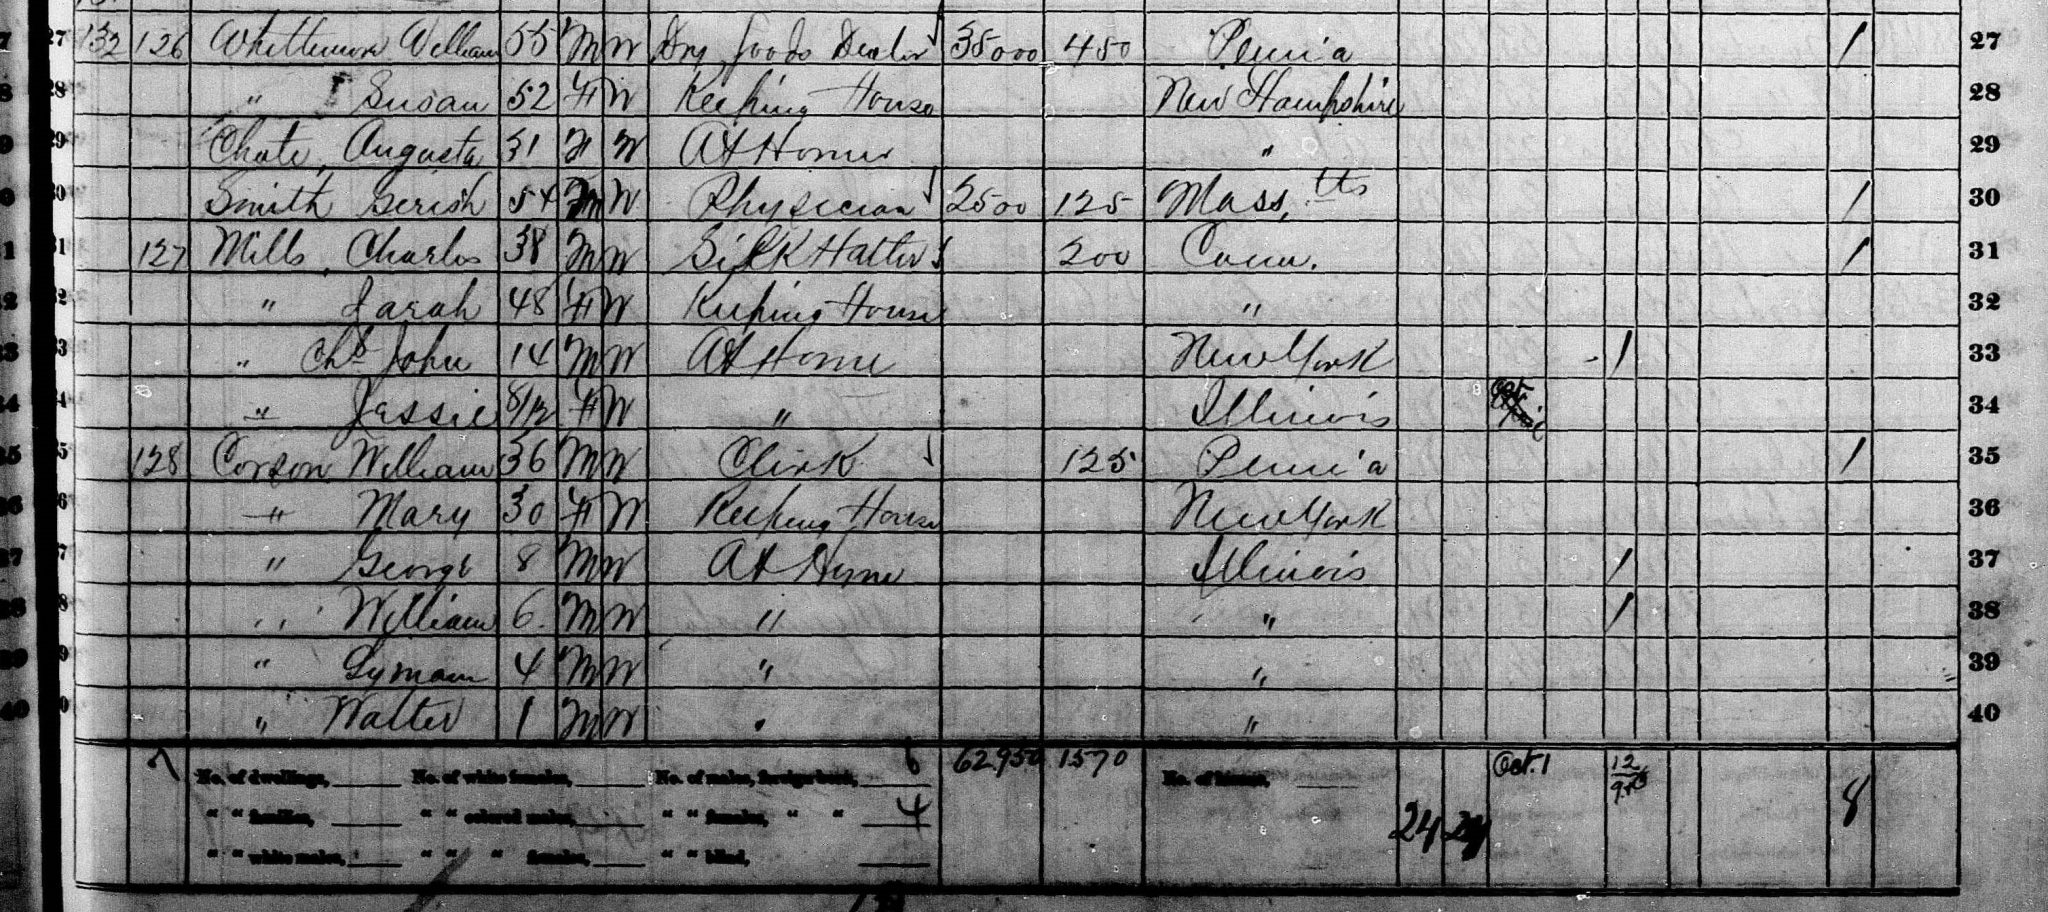 27 132 126 Whittemore William 55 M W Dry Goods Dealer 35000 450 Penn'a 1 27
28 " Susan 52 F W Keeping House New Hampshire 28
29 Chate, Augusta 31 F W At Home " 29
30 Smith Gerish 54 M W Physician 2500 125 Mass,tts 1 30
31 127 Mills, Charles 38 M W Silk Hatter 200 Conn. 1 31
32 " Sarah 48 F W Keeping House " 32
33 " Chs John 14 M W At Home New York 1 33
34 " Jessie 8/12 F W " Illinois Oct 34
35 128 Corson William 36 M W Clerk 125 Penn'a 1 35
36 " Mary 30 F W Keeping House New York 36
37 " George 8 M W At Home Illinois 1 37
38 " William 6 M W " " 1 38
39 " Lyman 4 M W " " 39
40 " Walter 1 M W " " 40
7 No. of dwellings, No. of white females, No. of males, foreign born, 6 62950 1570 No. of insane, Oct. 1 12
" " families, " " colored males, " " females, " " 4 24 24 8
" " white males, " " " females, " " blind,